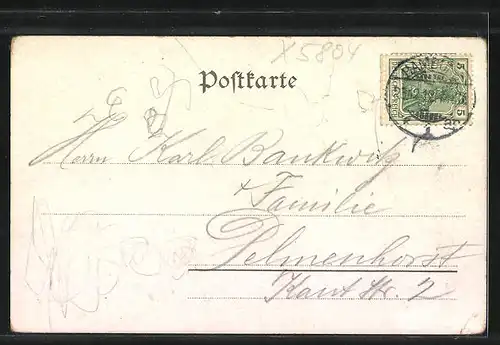 X5804
Postkarte
5
5
Herrn Karl Bankwitz
+ Familie
Delmenhorst
Kant Str. 2